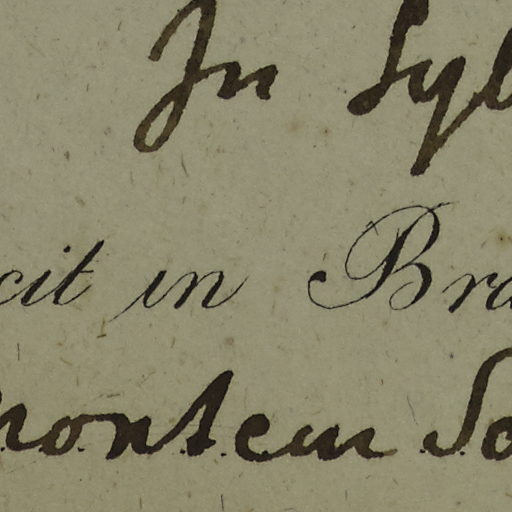 In Syl
cit in Bra
montem So